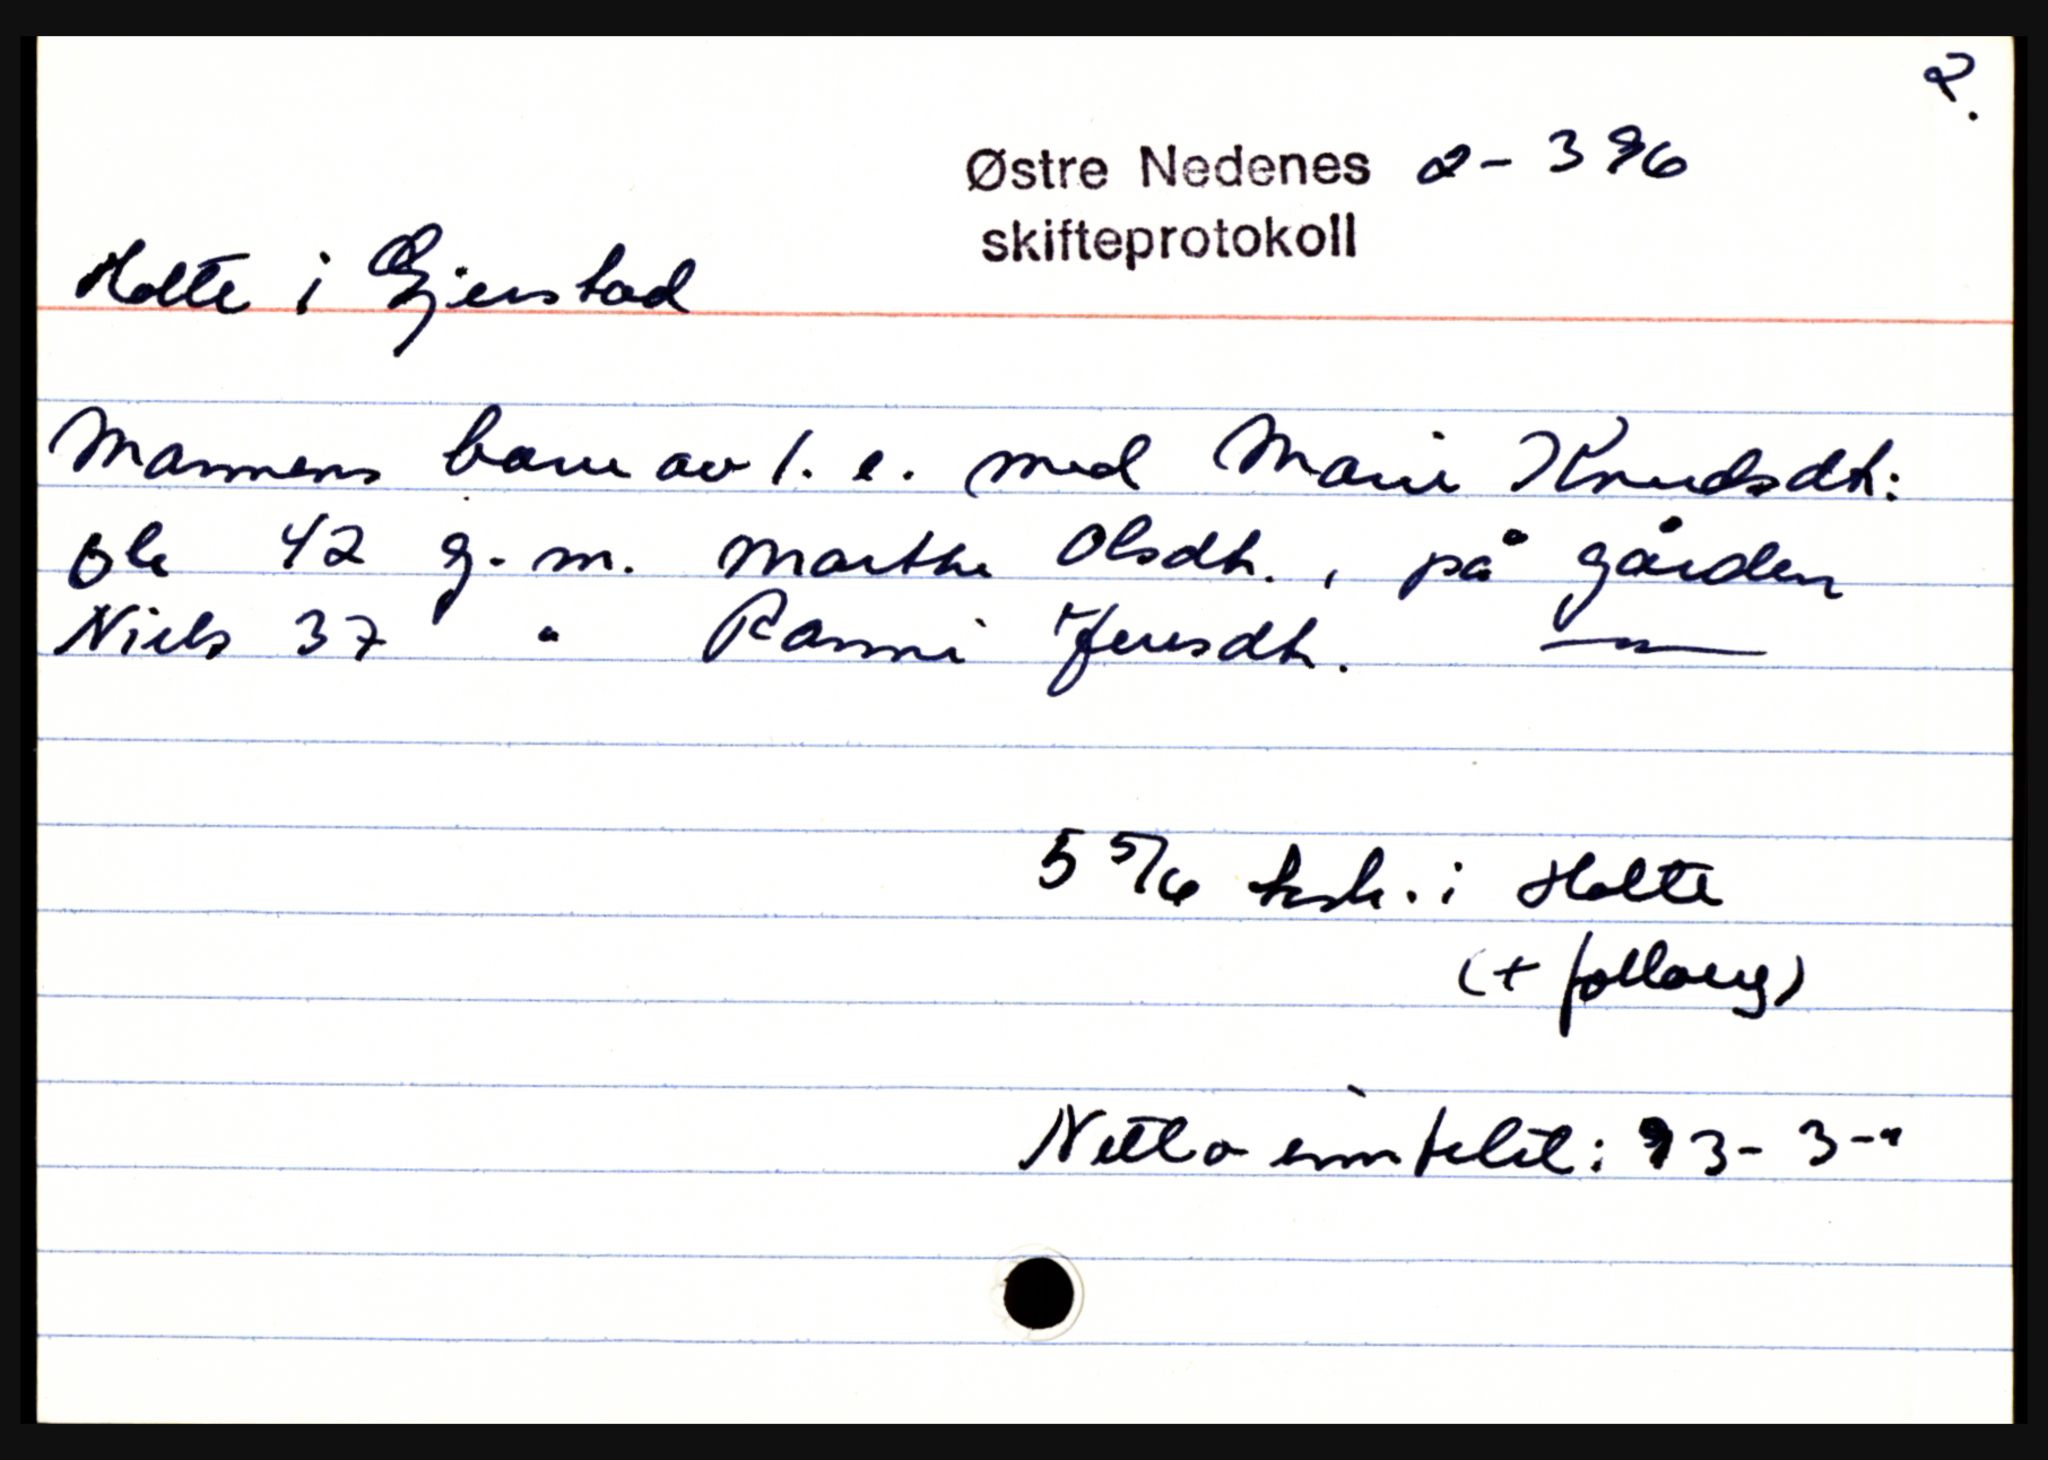 2.
Østre Nedenes 2-396
skifteprotokoll
Holte i Gjerstad
Mannens barn av 1. e. med Marie Knudsdtr:
Ole 42 g. m. Marthe Olsdtr., på gården
Niels 37 " Ranni Jensdtr. — " —
5 5/6 ksk. i Holte
(+ follaug)
Netto innteket: 93-3-"